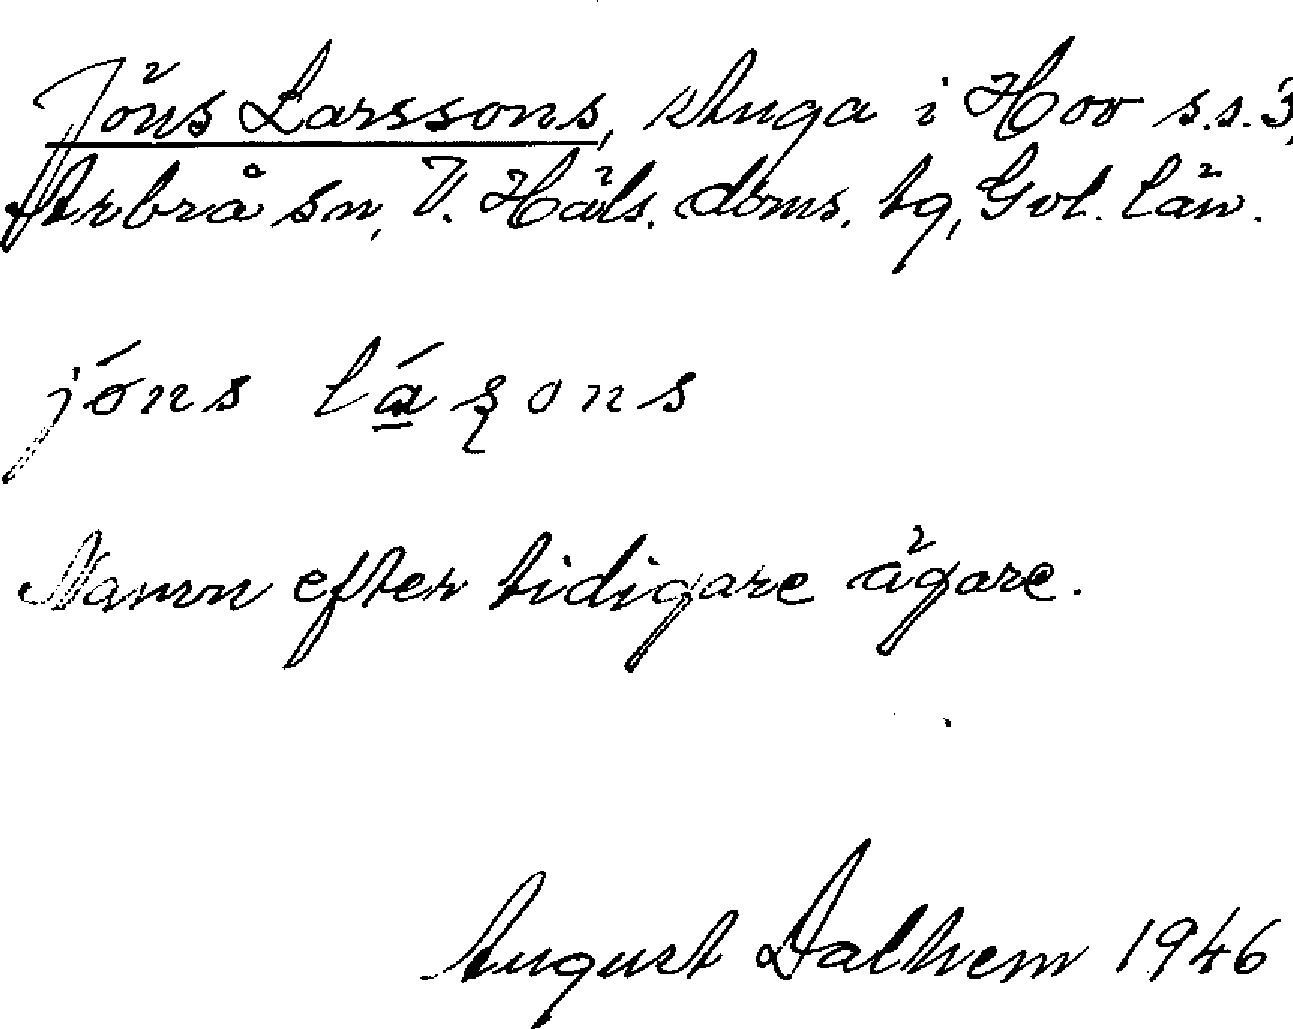 Jöns Larssons, stuga i Hov s.s. 3,
Arbrå sn, V. Häls. doms. tg, Gvl. län.
jóns lá̱ʂons
Namn efter tidigare ägare.
August Dalhem 1946